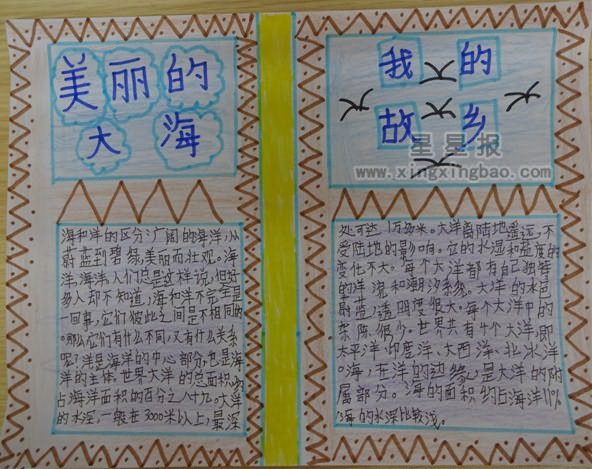 美丽的
大海
我的
故乡
星星报
www.xingxingbao.com
海和洋的区分:广阔的海洋,从
蔚蓝到碧绿,美丽而壮观。海
洋,海洋,人们总是这样说,但好
多人却不知道,海和洋不完全是
一回事,它们彼此之间是不相同的
。那么,它们有什么不同,又有什么关系
呢?洋是海洋的中心部分,也是海
洋的主体。世界大洋的总面积,约
占海洋面积的百分之八十九。大洋
的水深,一般在3000米以上,最深
处可达1万多米。大洋离陆地遥远,不
受陆地的影响。它的水温和盐度的
变化不大。每个大洋都有自己独特
的洋流和潮汐系统。大洋的水色
蔚蓝,透明度很大。每个大洋中的
杂质很少。世界共有4个大洋,即
太平洋、印度洋、大西洋、北冰洋
。海,在洋的边缘,是大洋的附
属部分。海的面积约占海洋11%
,海的水深比较浅。